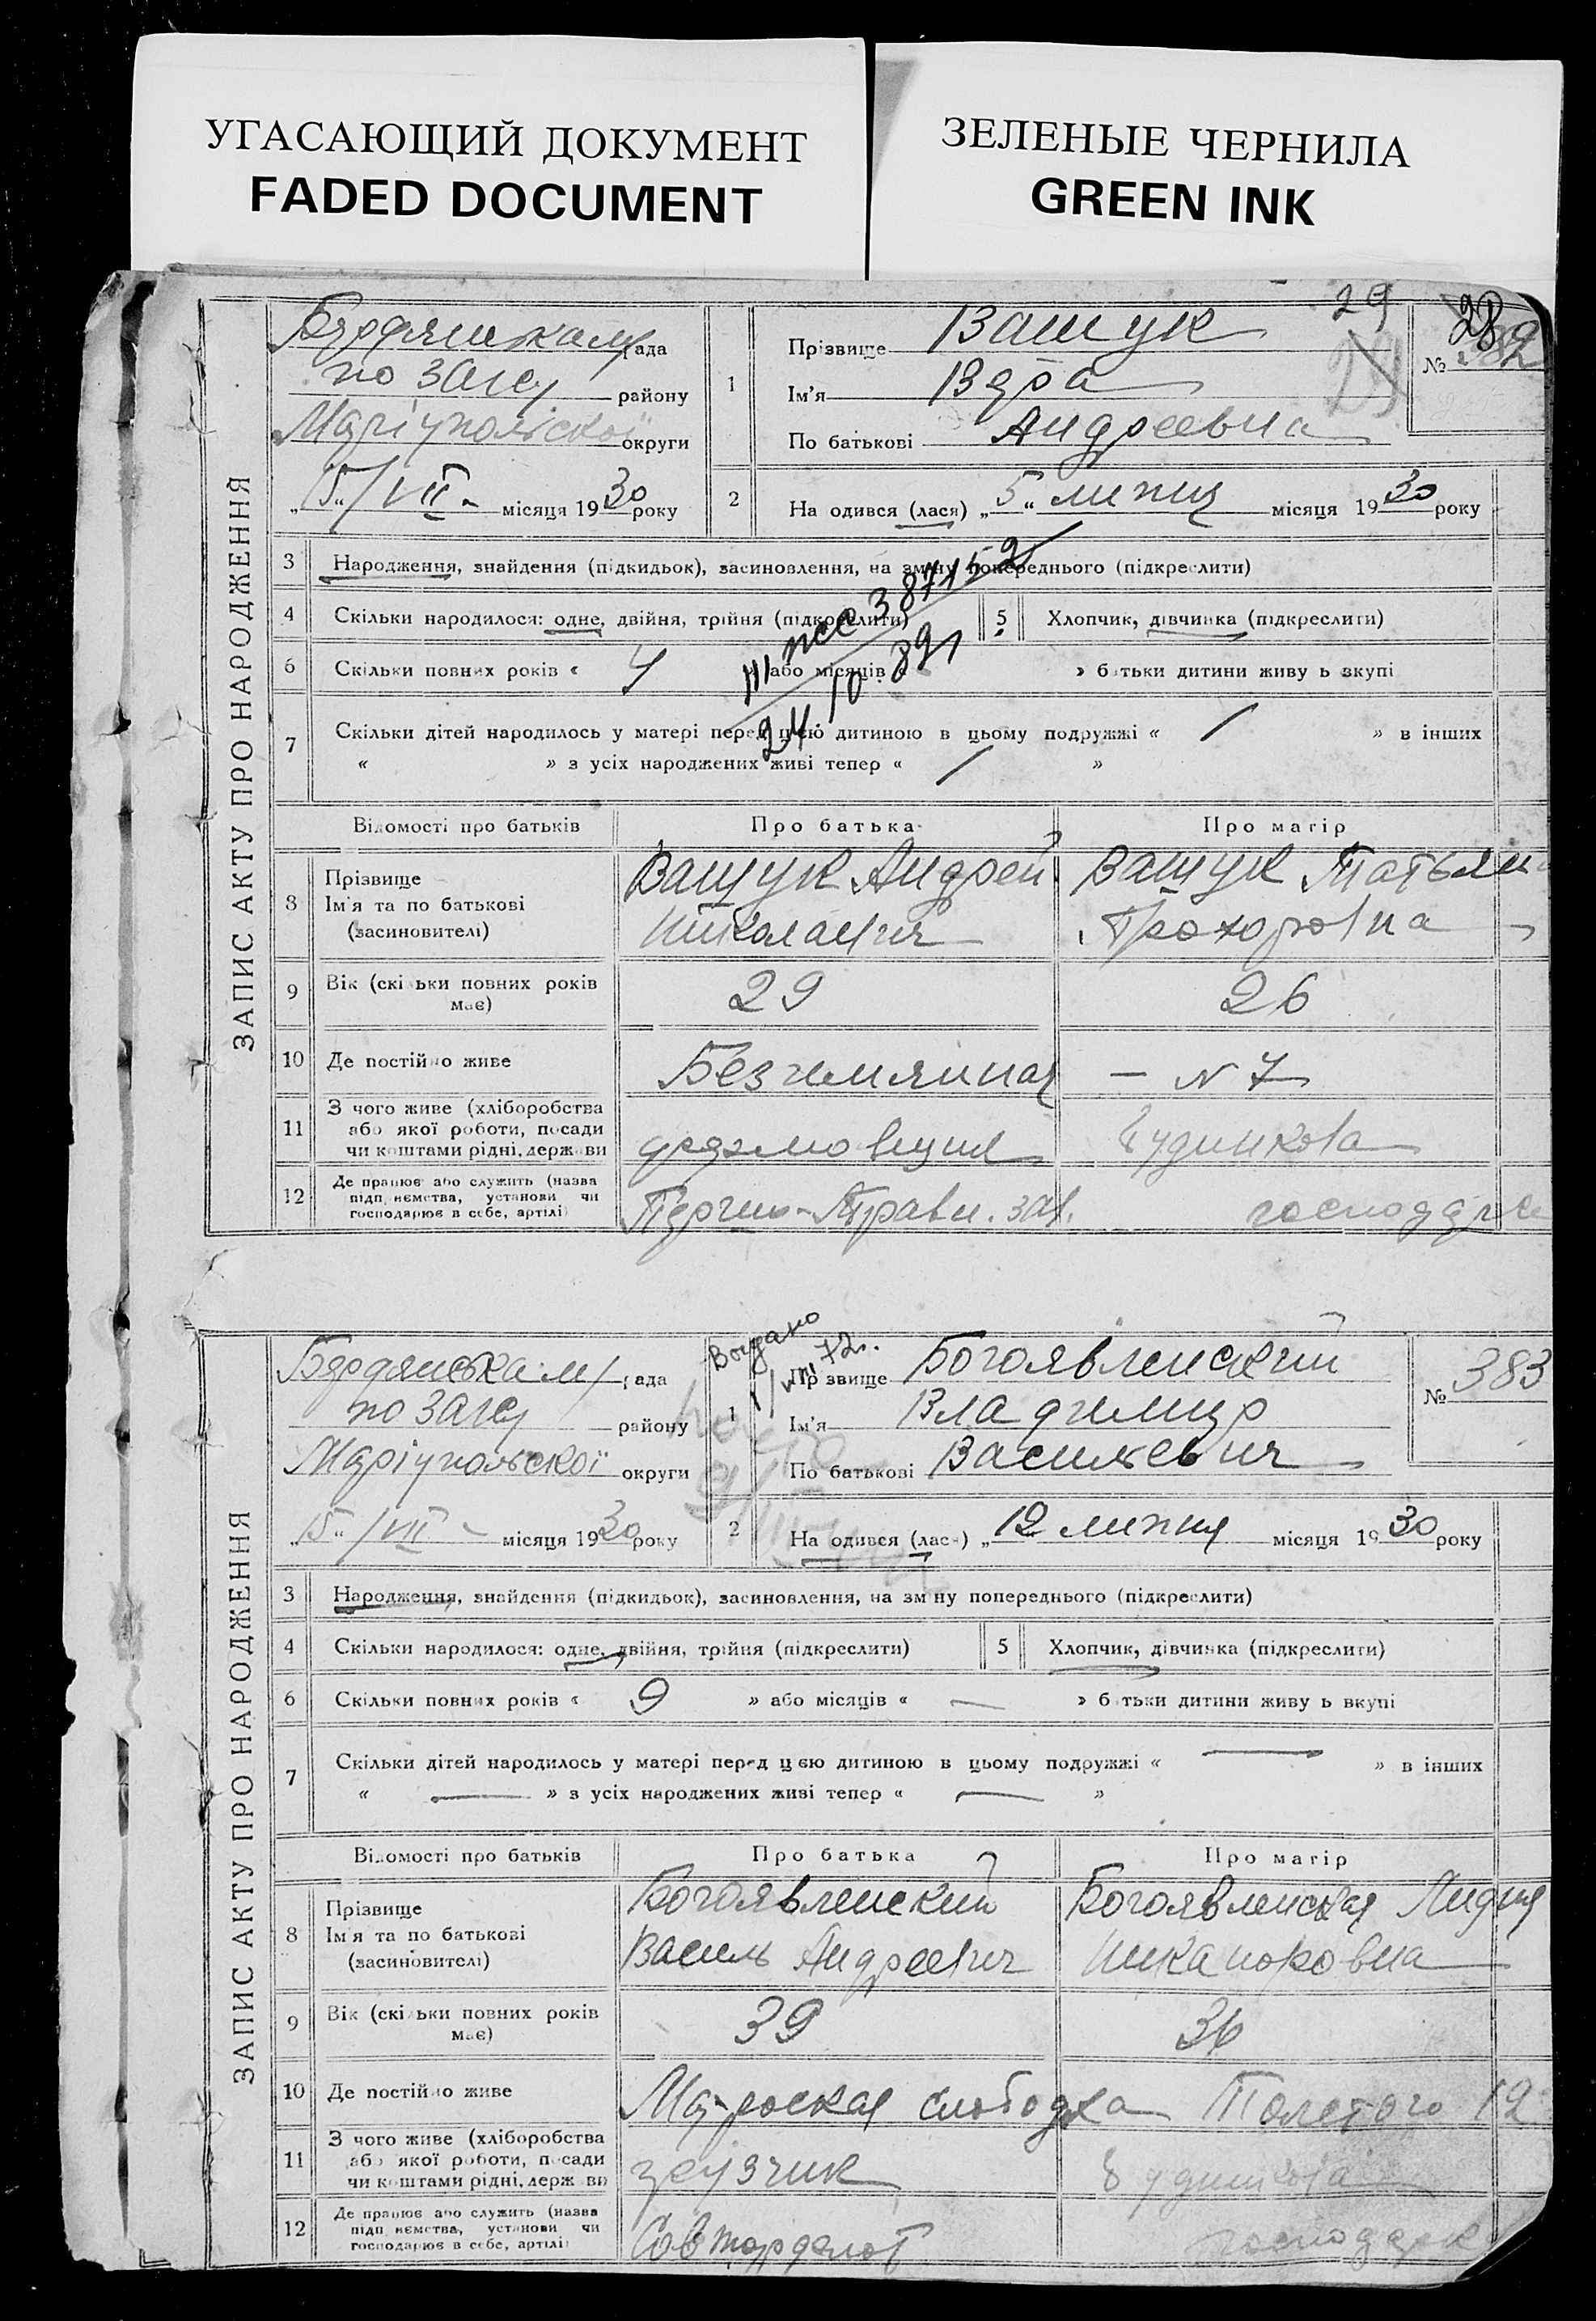 УГАСАЮЩИЙ ДОКУМЕНТ
FADED DOCUMENT
ЗЕЛЕНЫЕ ЧЕРНИЛА
GREEN INK
ЗАПИС АКТУ ПРО НАРОДЖЕННЯ
рада
по загсу району
Маріупольскої округи
„15“/VII- місяця 1930 року
29
28
№ 382
1
Прізвище Ващук
Ім'я Вера
По батькові Андреевна
2
На одився (лася) „5“ липня місяця 1930 року
3 Народження, знайдення (підкидьок), засиновлення, на зміну попереднього (підкреслити)
4 Скільки народилося: одне, двійня, трійня (підкреслити)
5 Хлопчик, дівчинка (підкреслити)
387152
6 Скільки повних років « 4 » або місяців « » батьки дитини живу ь вкупі
24 10 89
7 Скільки дітей народилось у матері перед цією дитиною в цьому подружжі « / » в інших
« » з усіх народжених живі тепер « / »
Відомості про батьків
Про батька
Про матір
8 Прізвище
Ім'я та по батькові
(засиновителі)
Ващук Андрей
Николаевич
Ващук Татьяна
Прохоровна
9 Вік (скільки повних років має)
29
26
10 Де постійно живе
– N 7
11 З чого живе (хліборобства
або якої роботи, посади
чи коштами рідні, держави
будинкова
12 Де працює або служить (назва
підприємства, установи чи
господарює в себе, артілі)
зав.
господарс
ЗАПИС АКТУ ПРО НАРОДЖЕННЯ
Бердянська м/рада
по загсу району
Маріупольскої округи
„15“/VII- місяця 1930 року
Выдано
1/VIII 72г.
№ 383
1
Прізвище Богоявленский
Ім'я Владимир
По батькові Васильевич
2
На одився (лася) „12 липня місяця 1930 року
3 Народження, знайдення (підкидьок), засиновлення, на зміну попереднього (підкреслити)
4 Скільки народилося: одне, двійня, трійня (підкреслити)
5 Хлопчик, дівчинка (підкреслити)
6 Скільки повних років « 9 » або місяців « — » батьки дитини живу ь вкупі
7 Скільки дітей народилось у матері перед цією дитиною в цьому подружжі « — » в інших
« — » з усіх народжених живі тепер « — »
Відомості про батьків
Про батька
Про матір
8 Прізвище
Ім'я та по батькові
(засиновителі)
Богоявленский
Василь Андреевич
Богоявленская Лидия
Никаноровна
9 Вік (скільки повних років має)
39
36
10 Де постійно живе
слободка Толстого 12
11 З чого живе (хліборобства
або якої роботи, посади
чи коштами рідні, держави
грузчик
будинкова
12 Де працює або служить (назва
підприємства, установи чи
господарює в себе, артілі)
Совторгфлот
господарс